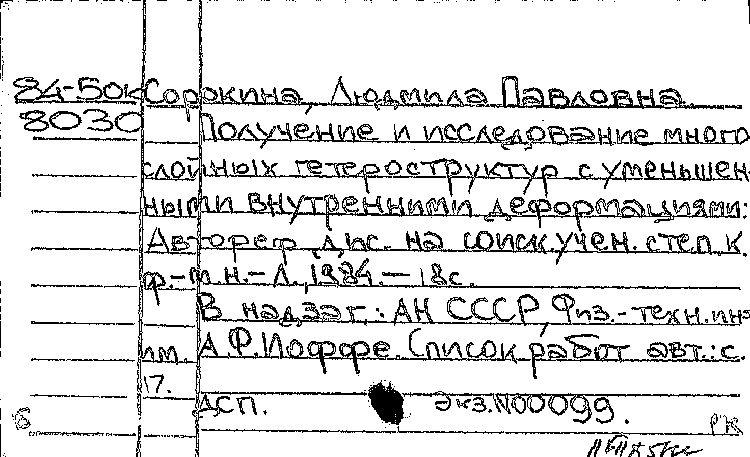 84-50к Сорокина, Людмила Павловна
8030 Получение и исследование много
слойных гетероструктур с уменьшен-
ными внутренними деформациями:
Автореф. дис. на соиск. учен. степ. к.
ф.-м.н.-Л., 1984.-18с.
В надзаг.: АН СССР, Физ.-техн. ин-т
им. А.Ф.Иоффе. Список работ авт.: с.
17.
ДСП. Экз.N00099.
Б